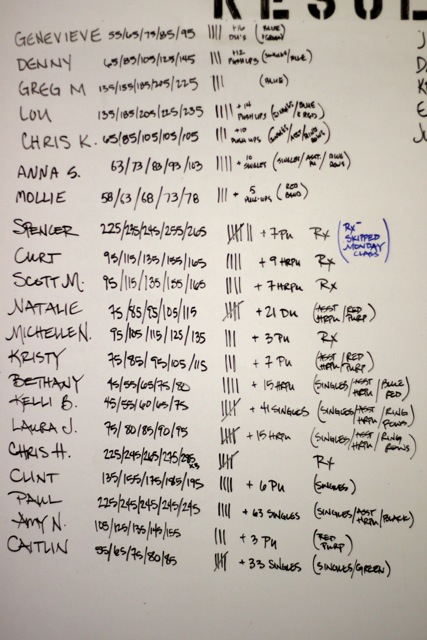 RESUL
GENEVIEVE 55/65/75/85/95 |||| (BLUE
DENNY 65/85/105/125/145 |||| +12 PUSHUPS (SINGLES/BLUE)
GREG M 135/155/185/205/225 ||| (BLUE)
LOU 135/185/205/225/235 |||| +14 PUSH UPS (SINGLES/BLUE
CHRIS K. 65/85/105/105/105 |||| +10 PUSH UPS
ANNA S. 63/73/83/93/103 |||| +10 SINGLES (SINGLES/ASST. PU/BLUE ROWS)
MOLLIE 58/63/68/73/78 ||| +5 PULL-UPS (RED BAND)
SPENCER 225/235/245/255/265 +7 PU Rx (Rx- SKIPPED MONDAY CLASS)
CURT 95/115/135/155/165 |||| +9 HRPU Rx
SCOTT M. 95/115/135/155/165 |||| +7 HRPU Rx
NATALIE 75/85/95/105/115 +21 DU (ASST HRPU/RED PURP)
MICHELLE N. 95/105/115/125/135 ||| +3 PU Rx
KRISTY 75/85/95/105/115 ||| +7 PU (ASST HRPU/RED PURP)
BETHANY 45/55/65/75/80 |||| +15 HRPU (SINGLES/ASST HRPU/BLUE RED)
KELLI B. 45/55/60/65/75 +41 SINGLES (SINGLES/ASST HRPU/RING ROWS)
LAURA J. 75/80/85/90/95 +15 HRPU (SINGLES/ASST HRPU/RING ROWS)
CHRIS H. 225/245/265/275/285 x3 Rx
CLINT 135/155/175/185/195 |||| +6 PU (SINGLES)
PAUL 225/245/245/245/245 |||| +63 SINGLES (SINGLES/ASST HRPU/BLACK)
AMY N. 105/125/135/145/155 ||| +3 PU (RED PURP)
CAITLIN 55/65/75/80/85 +33 SINGLES (SINGLES/GREEN)